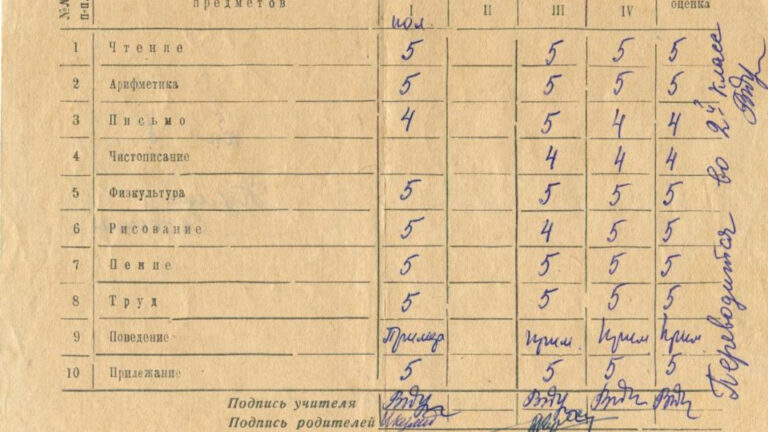 №№ п-п. предметов I II III IV оценка
пол
1 Чтение 5 5 5 5
2 Арифметика 5 5 5 5
3 Письмо 4 5 4 4
4 Чистописание 4 4 4
5 Физкультура 5 5 5 5
6 Рисование 5 4 5 5
7 Пение 5 5 5 5
8 Труд 5 5 5 5
9 Поведение Пример прим прим прим
10 Прилежание 5 5 5 5
Подпись учителя
Подпись родителей
Переводится во 2й класс